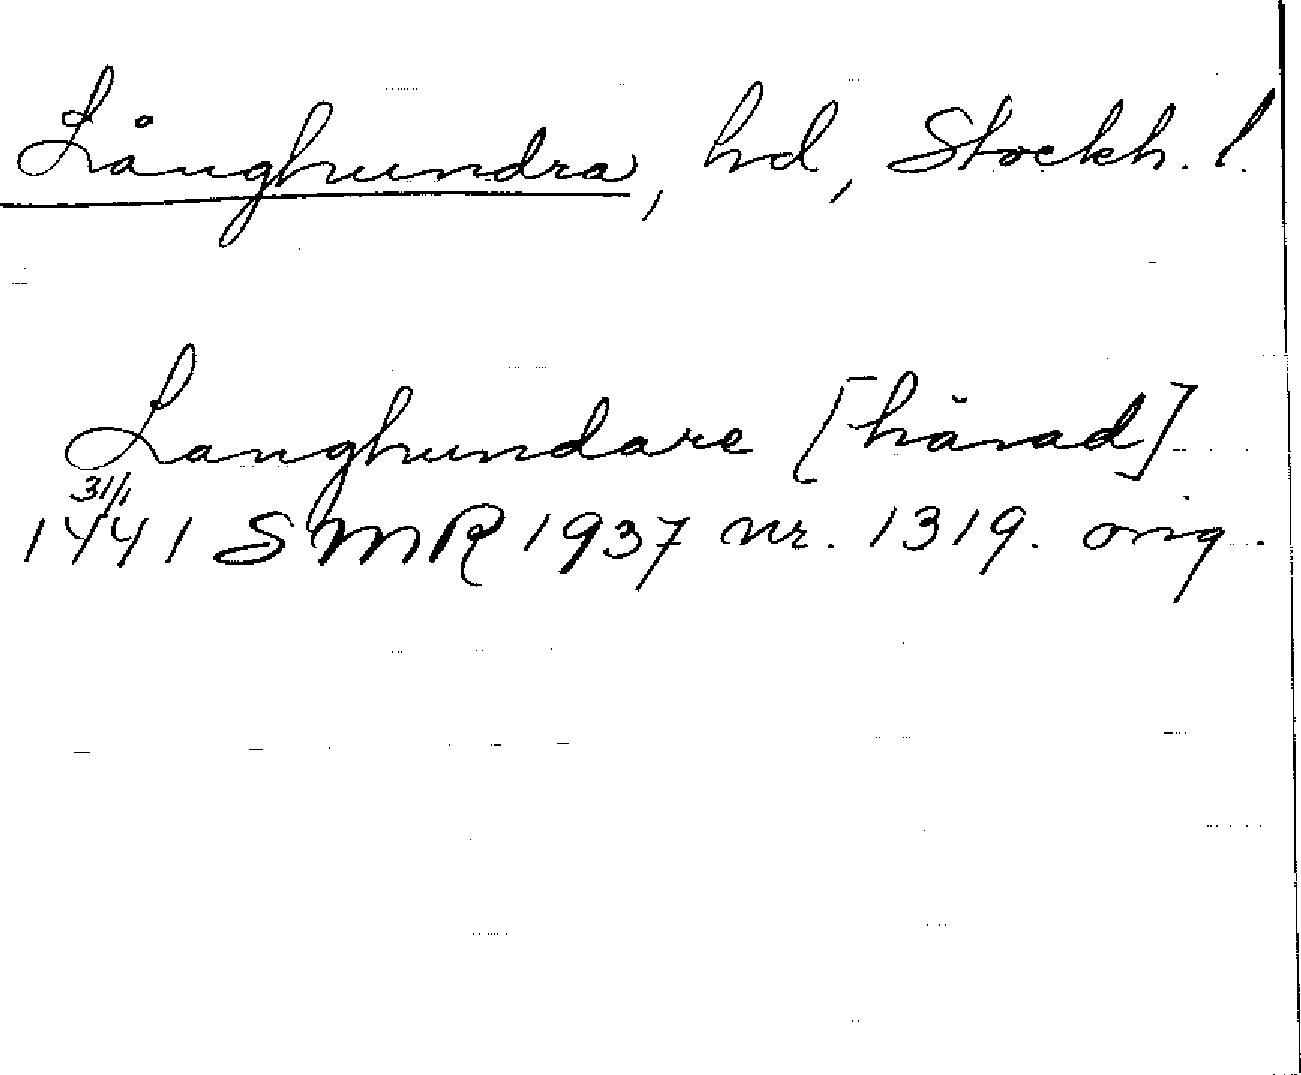 Långhundra, hd, Stockh. l.
Langhundare [härad]
31/1
1441 SMR 1937 nr. 1319. orig.